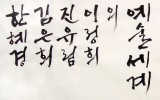 한혜경
김은희
진유림
이정희
의
예술세계